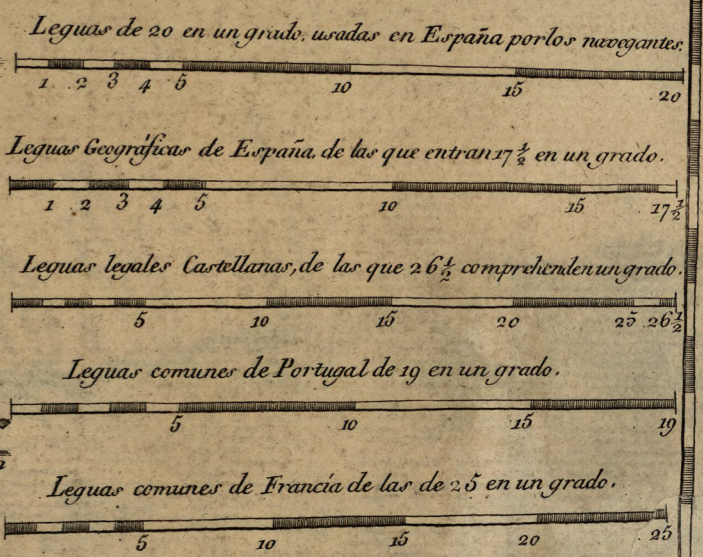 Leguas de 20 en un grado, usadas en España por los navegantes.
1 2 3 4 5 10 15 20
Leguas Geográficas de España, de las que entran 17 1/2 en un grado.
1 2 3 4 5 10 15 17 1/2
Leguas legales Castellanas, de las que 26 1/2 comprehenden un grado.
5 10 15 20 25 26 1/2
Leguas comunes de Portugal de 19 en un grado.
5 10 15 19
Leguas comunes de Francia de las de 25 en un grado.
5 10 15 20 25